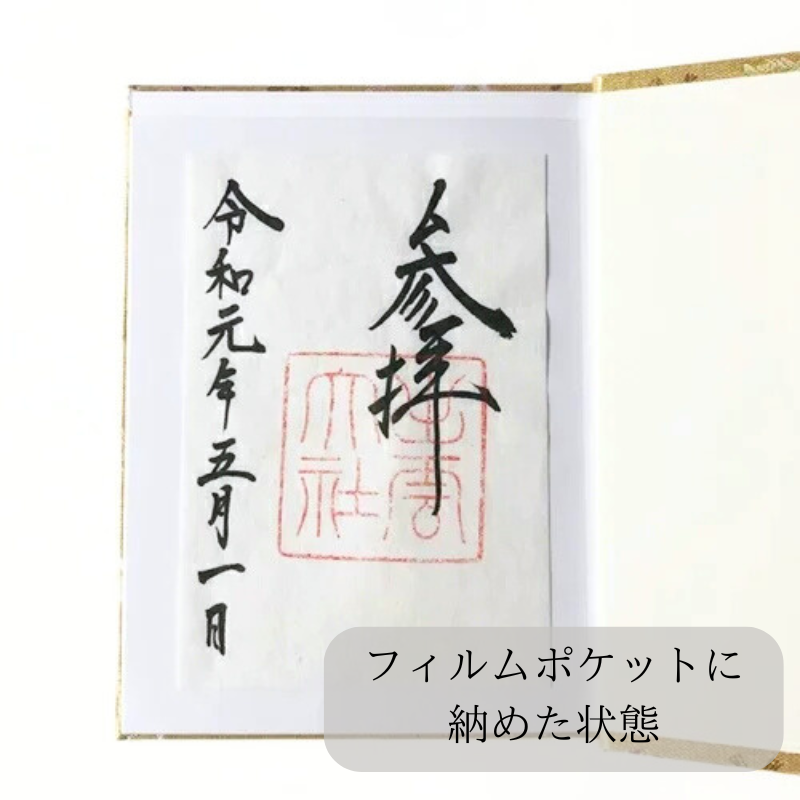 参拝
出雲
大社
令和元年五月一日
フィルムポケットに
納めた状態